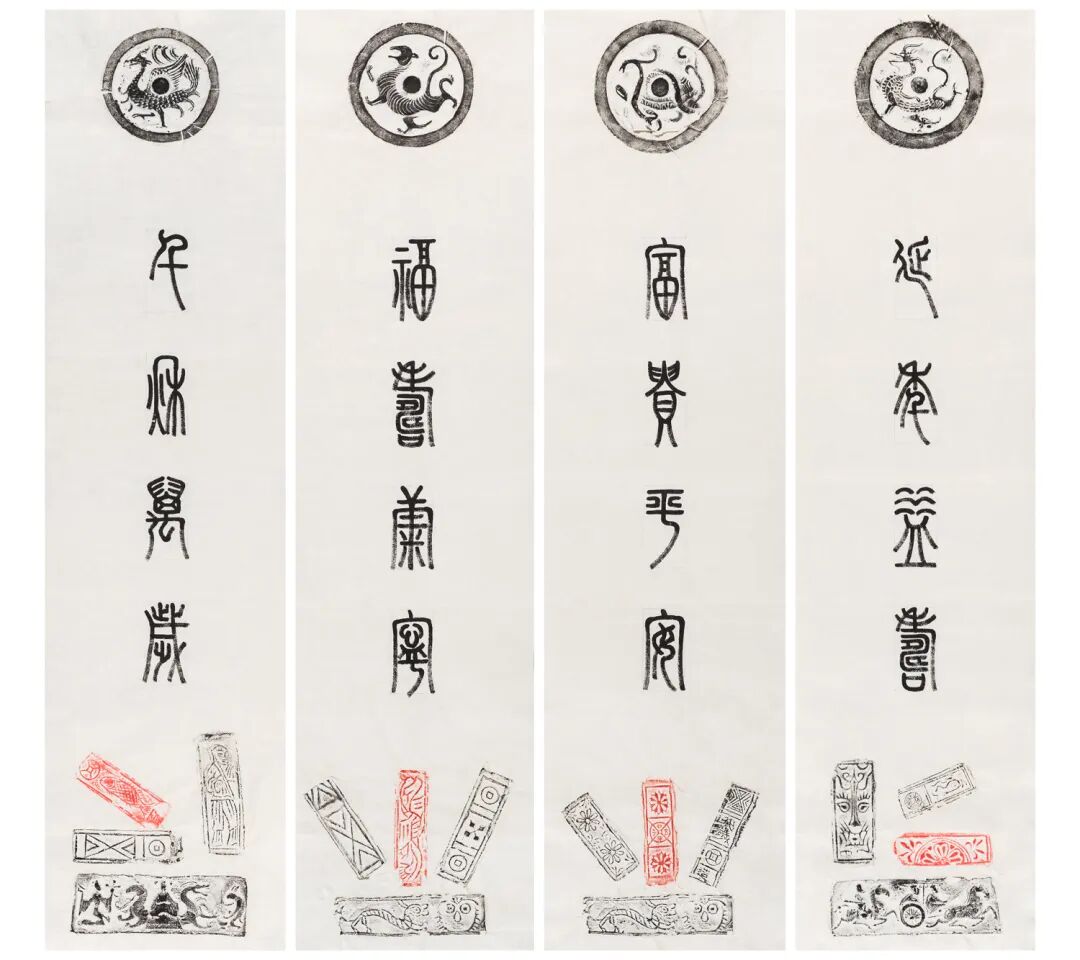 延年益壽
富貴平安
福壽康寧
千秋萬歲